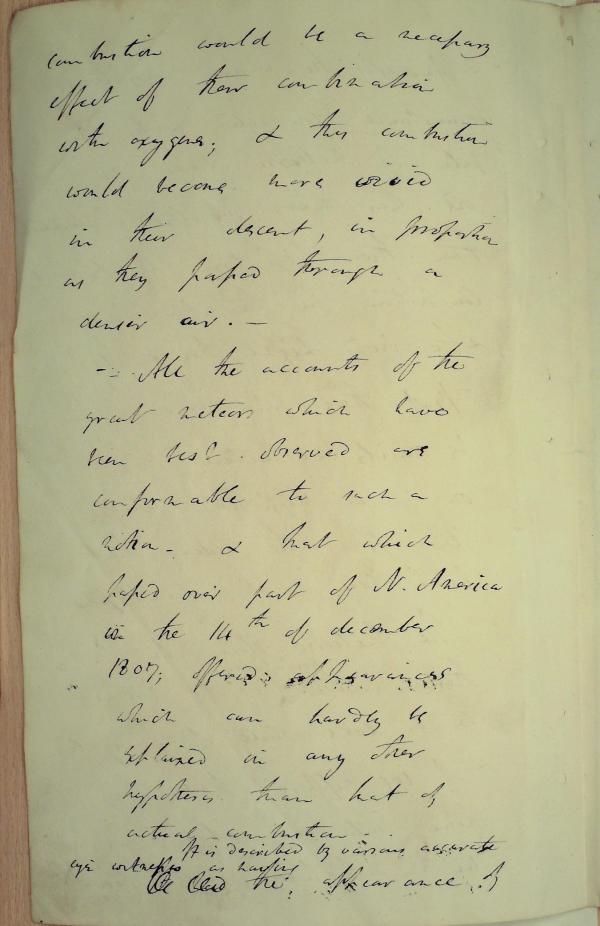 combustion would be a necessary
effect of their combination
with oxygene; & this combustion
would become more vivid
in their descent, in proportion
as they passed through a
denser air. —
— All the accounts of the
great meteors which have
been best observed are
conformable to such a
notion - & that which
passed over part of N. America
on the 14th of december
1807, offered appearances
which can hardly be
explained in any other
hypothesis than that of
actual combustion -
It is described by various accurate
eye witnesses as having
the appearance of